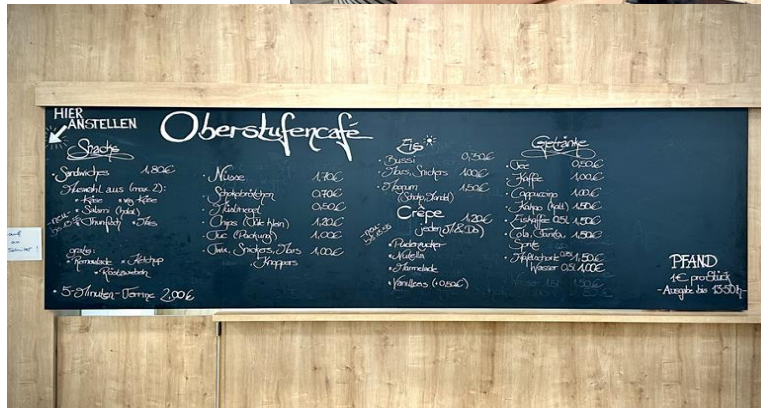 HIER
ANSTELLEN
Oberstufencafé
Snacks
• Sandwiches 1,80€
Auswahl aus (max. 2):
• Käse • veg. Käse
• Salami (halal)
• Thunfisch
gratis:
• Remoulade • Ketchup
• Röstzwiebeln
• 5-Minuten-Terrine 2,00€
• Nüsse 1,70€
• Schokobrötchen 0,70€
• Müsliriegel 0,50€
• Chips (Tüte klein) 1,20€
• Tuc (Packung) 1,00€
• Twix, Snickers, Mars 1,00€
• Knoppers
Eis
• Bussi 0,30€
• Mars, Snickers 1,00€
• Magnum 1,50€
(Schoko, Mandel)
Crêpe 1,20€
(jeden Di & Do)
• Puderzucker
• Nutella
• Marmelade
• Vanilleeis (+0,50€)
Getränke
• Tee 0,50€
• Kaffee 1,00€
• Cappuccino 1,00€
• Kakao (kalt) 1,50€
• Eiskaffee 0,5l 1,50€
• Cola, Fanta, 1,50€
Sprite
• Apfelschorle 0,5l 1,50€
• Wasser 0,5l 1,00€
PFAND
1€ pro Stück
- Ausgabe bis 13:50h -